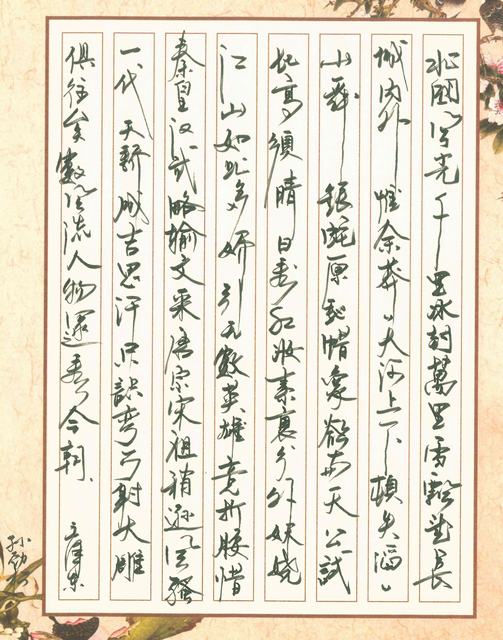 北國风光千里冰封萬里雪飘望長
城内外惟余莽々大河上下頓失滔々
山舞银蛇原驰蜡象欲与天公試
比高須晴日看红妝素裹分外妖娆
江山如此多娇引无數英雄竞折腰惜
秦皇汉武略输文采唐宗宋祖稍逊风骚
一代天骄成吉思汗只識弯弓射大雕
俱往矣數风流人物還看今朝、毛澤东
孙